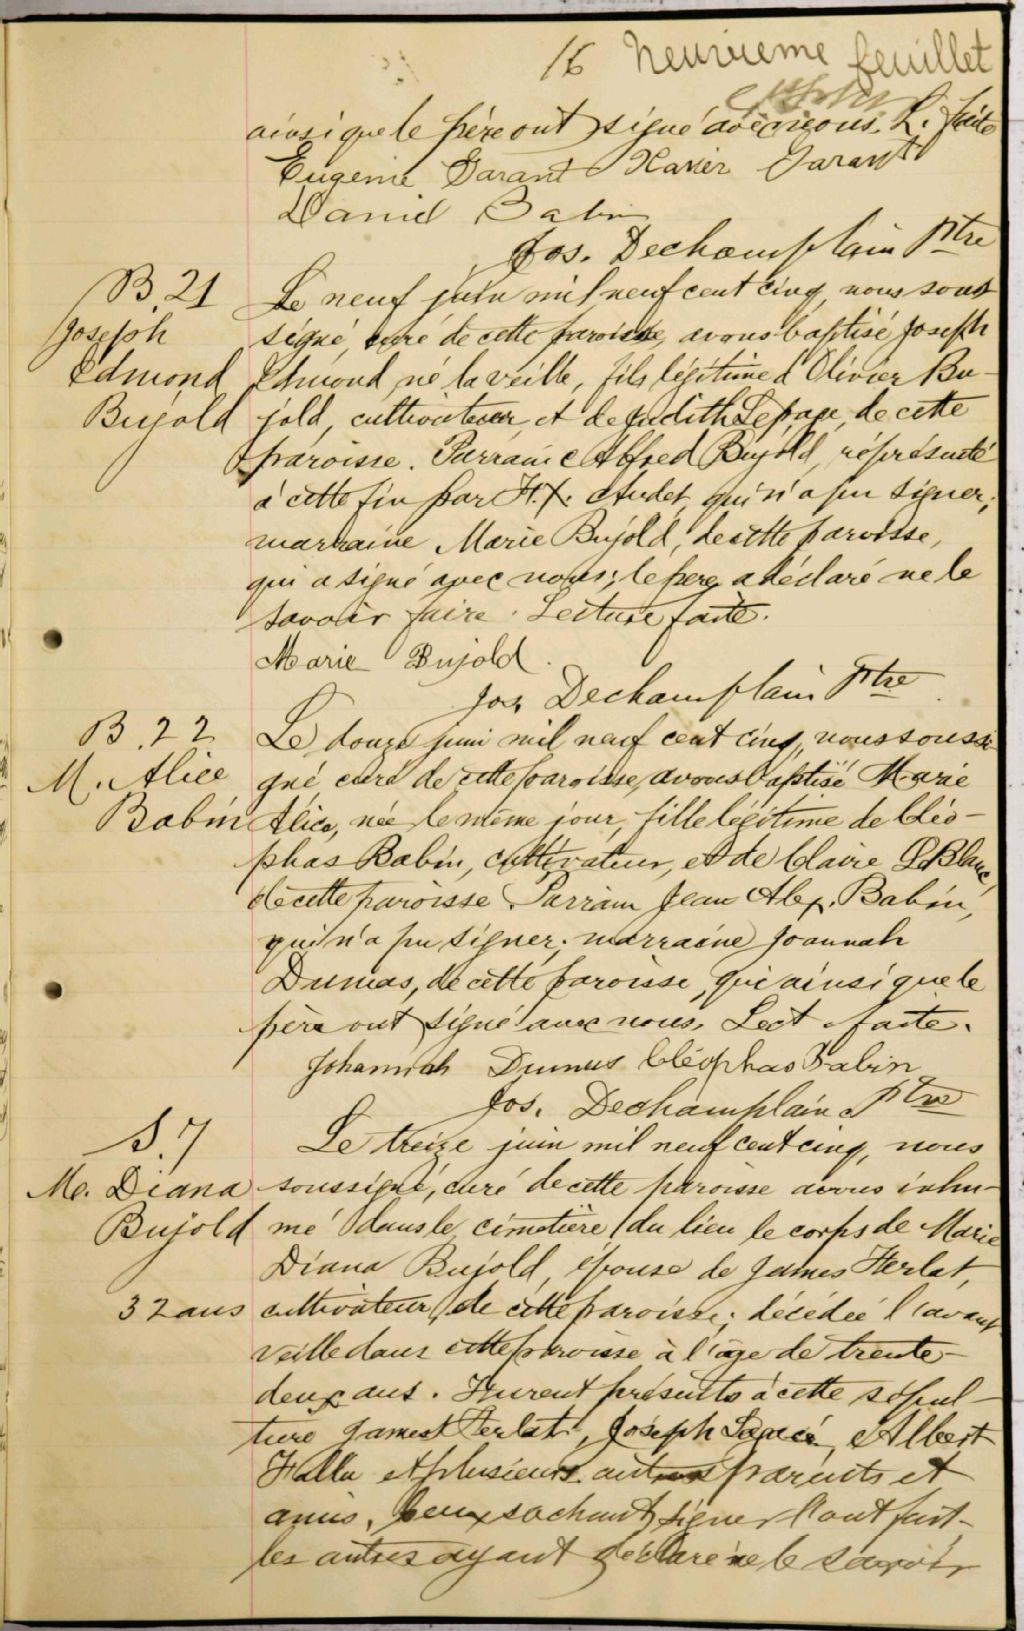 16 neuvieme feuillet
ainsi que le père ont signé avec nous. L. faite
Eugenie Garant Xavier Garant
Daniel Babin
Jos. Dechamplain Ptre
B. 21
Joseph
Edmond
Bujold
Le neuf juin mil neuf cent cinq, nous sous
signé, curé de cette paroisse, avons baptisé Joseph
Edmond, né la veille, fils légitime d'Olivier Bu-
jold, cultivateur, et de Judith Lepage, de cette
paroisse. Parrain Alfred Bujold, réprésenté
à cette fin par F.X. Audet, qui n'a pu signer;
marraine Marie Bujold, de cette paroisse,
qui a signé avec nous; le père a déclaré ne le
savoir faire. Lecture faite.
Marie Bujold.
Jos. Dechamplain Ptre
B. 22
M. Alice
Babin
Le douze juin mil neuf cent cinq, nous soussi
gné curé de cette paroisse, avons baptisé Marie
Alice, née le même jour, fille légitime de Cléo-
phas Babin, cultivateur, et de Claire LeBlanc,
de cette paroisse. Parrain Jean Alex. Babin,
qui n'a pu signer; marraine Joannah
Dumas, de cette paroisse, qui ainsi que le
père ont signé avec nous. Lect. faite.
Johannah Dumas Cléophas Babin
Jos. Dechamplain Ptre
S. 7
M. Diana
Bujold
32 ans
Le treize juin mil neuf cent cinq, nous
soussigné, curé de cette paroisse avons inhu-
mé dans le cimetière du lieu le corps de Marie
Diana Bujold, épouse de James Ferlat,
cultivateur, de cette paroisse; décédée l'avant
veille dans cette paroisse à l'âge de trente-
deux ans. Furent présents à cette sépul-
ture James Ferlat, Joseph Albert
Halle et plusieurs autres parents et
amis. Ceux sachant signer l'ont fait
les autres ayant déclaré ne le savoir